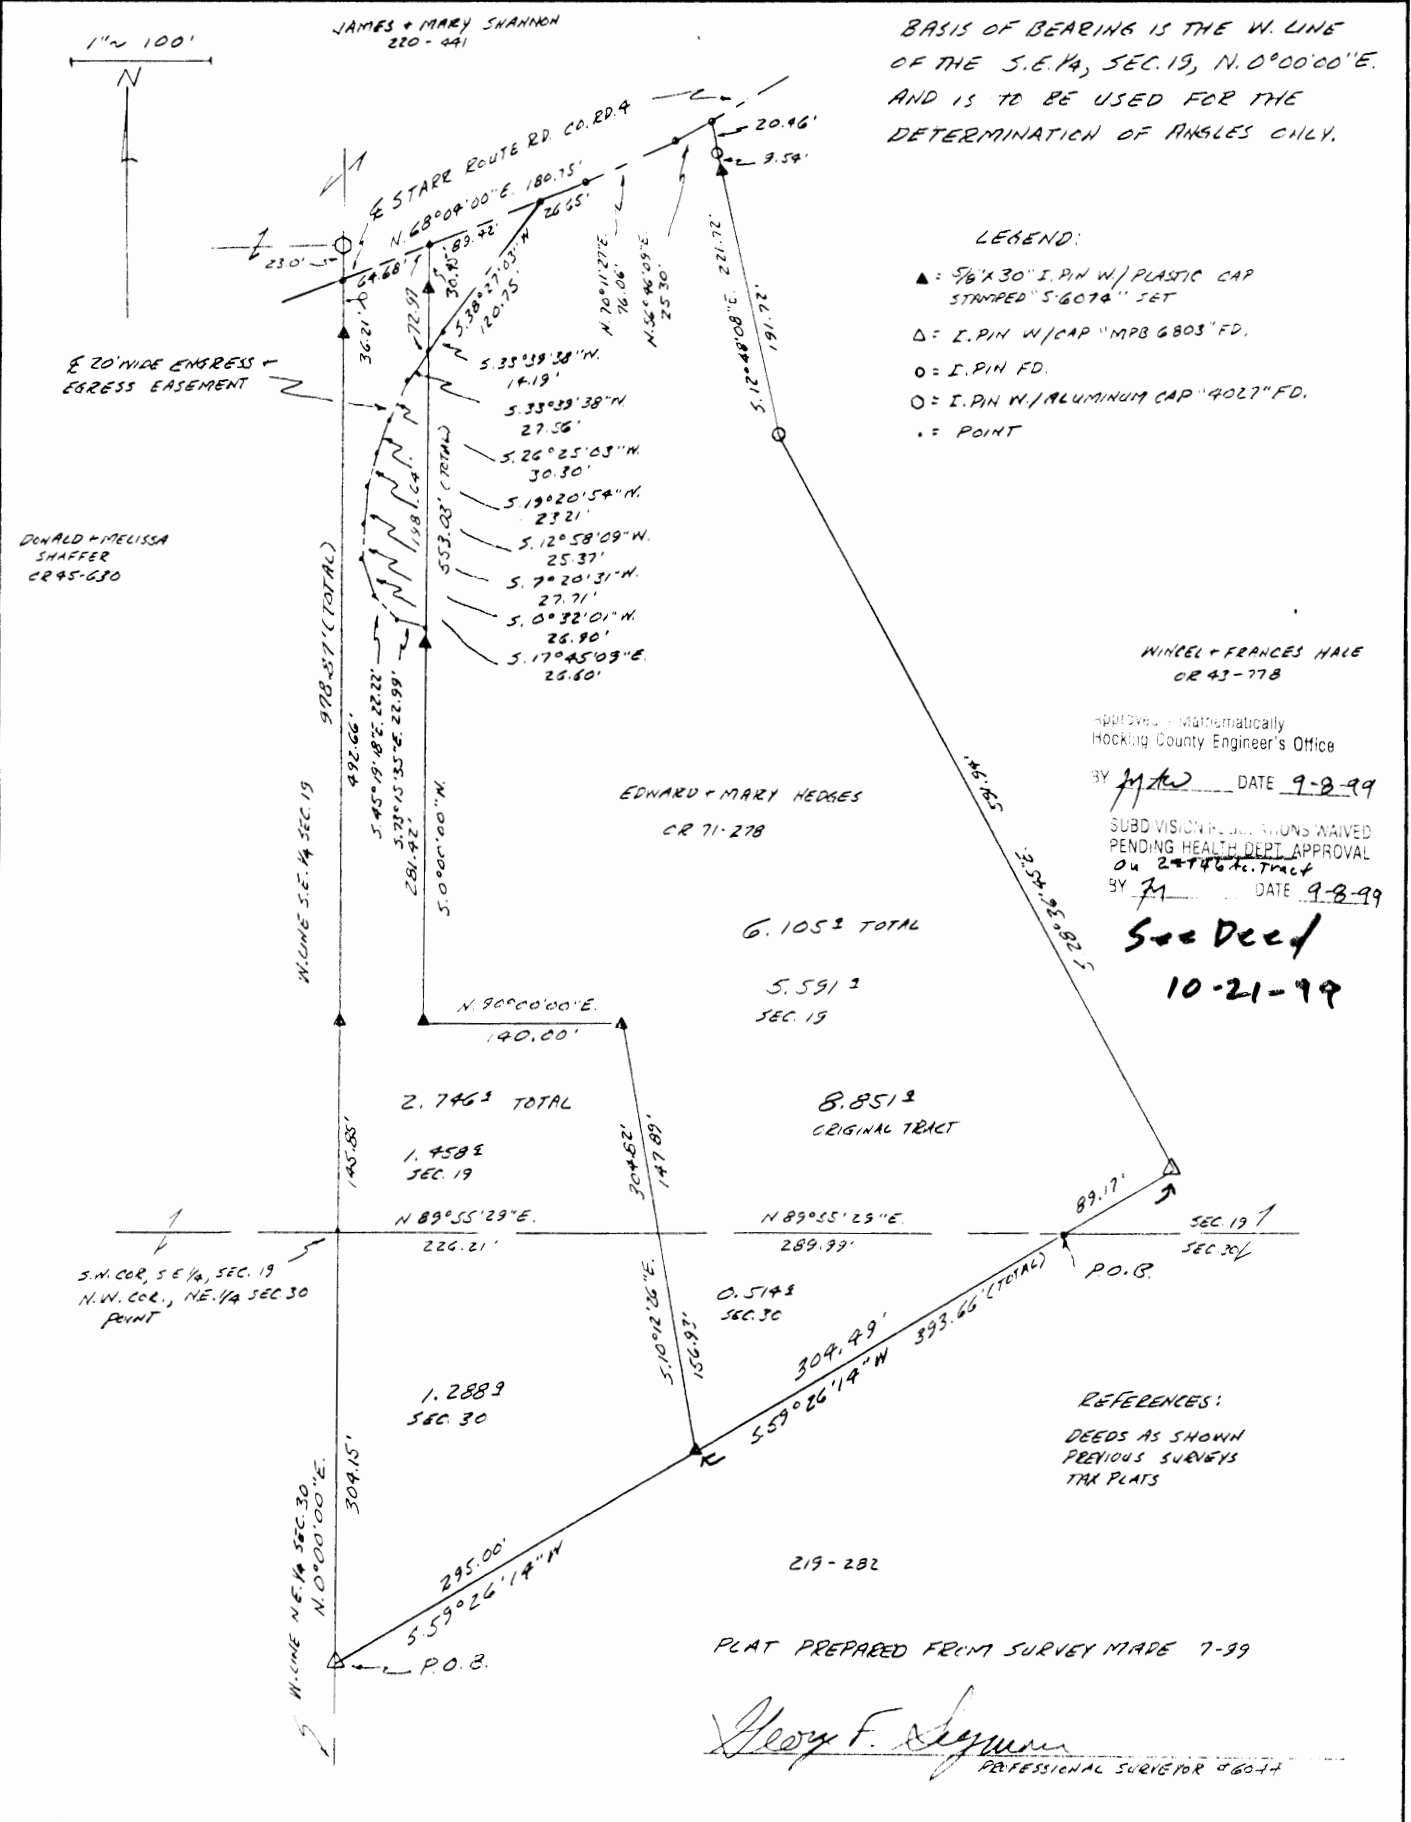 1"~ 100'
N
JAMES + MARY SHANNON
220-441
BASIS OF BEARING IS THE W. LINE
OF THE S.E.1/4, SEC.19, N.0°00'00"E.
AND IS TO BE USED FOR THE
DETERMINATION OF ANGLES ONLY.
℄ STARR ROUTE RD. CO.RD.4
N.68°04'00"E. 180.75'
20.46'
9.54'
23.0'
64.68'
89.42'
26.65'
36.21'
72.97
30.45'
S.38°27'03"W
120.75'
N.70°11'27"E.
76.06'
N.56°46'09"E.
25.30'
S.12°48'08"E. 221.72'
191.72'
LEGEND:
▲ = 5/8"X30" I.PIN W/PLASTIC CAP
STAMPED "S-6074" SET
△ = I.PIN W/CAP "MPB 6803" FD.
o = I.PIN FD.
O = I.PIN W./ALUMINUM CAP "4027" FD.
. = POINT
℄ 20' WIDE ENGRESS +
EGRESS EASEMENT
S.33°39'38"W.
14.19'
S.33°39'38"W.
27.56'
S.26°25'03"W.
30.30'
S.19°20'54"W.
23.21'
S.12°58'09"W.
25.37'
S.7°20'31"W.
27.71'
S.0°32'01"W.
26.90'
S.17°45'09"E.
26.60'
198.64'
553.03' (TOTAL)
DONALD + MELISSA
SHAFFER
OR 45-630
978.87' (TOTAL)
492.66'
S.45°19'18"E. 22.22'
S.73°15'35"E. 22.99'
281.42'
S.0°00'00"W.
W.LINE S.E.1/4 SEC.19
WINCEL + FRANCES HALE
OR 43-778
Approved - Mathematically
Hocking County Engineer's Office
BY DATE 9-8-99
SUBDIVISION REGULATIONS WAIVED
PENDING HEALTH DEPT. APPROVAL
On 2.746 Ac. Tract
BY DATE 9-8-99
See Deed
10-21-99
EDWARD + MARY HEDGES
OR 71-278
591.94'
S.28°36'45"E.
6.105± TOTAL
5.591±
SEC. 19
N.90°00'00"E.
140.00'
2.746± TOTAL
1.458±
SEC. 19
8.851±
ORIGINAL TRACT
145.85'
304.82'
147.89'
89.17'
N 89°55'29"E.
226.21'
N 89°55'29"E.
289.99'
SEC. 19
SEC. 30
P.O.B.
S.W. COR, S E 1/4, SEC. 19
N.W. COR., N.E. 1/4 SEC 30
POINT
0.514±
SEC. 30
S.10°12'26"E.
156.93'
304.49'
393.66' (TOTAL)
S.59°26'14"W
1.288±
SEC. 30
REFERENCES:
DEEDS AS SHOWN
PREVIOUS SURVEYS
TAX PLATS
304.15'
W.LINE N.E.1/4 SEC.30
N.0°00'00"E.
295.00'
S.59°26'14"W
219-282
P.O.B.
PLAT PREPARED FROM SURVEY MADE 7-99
George F. Seymour
PROFESSIONAL SURVEYOR #6044